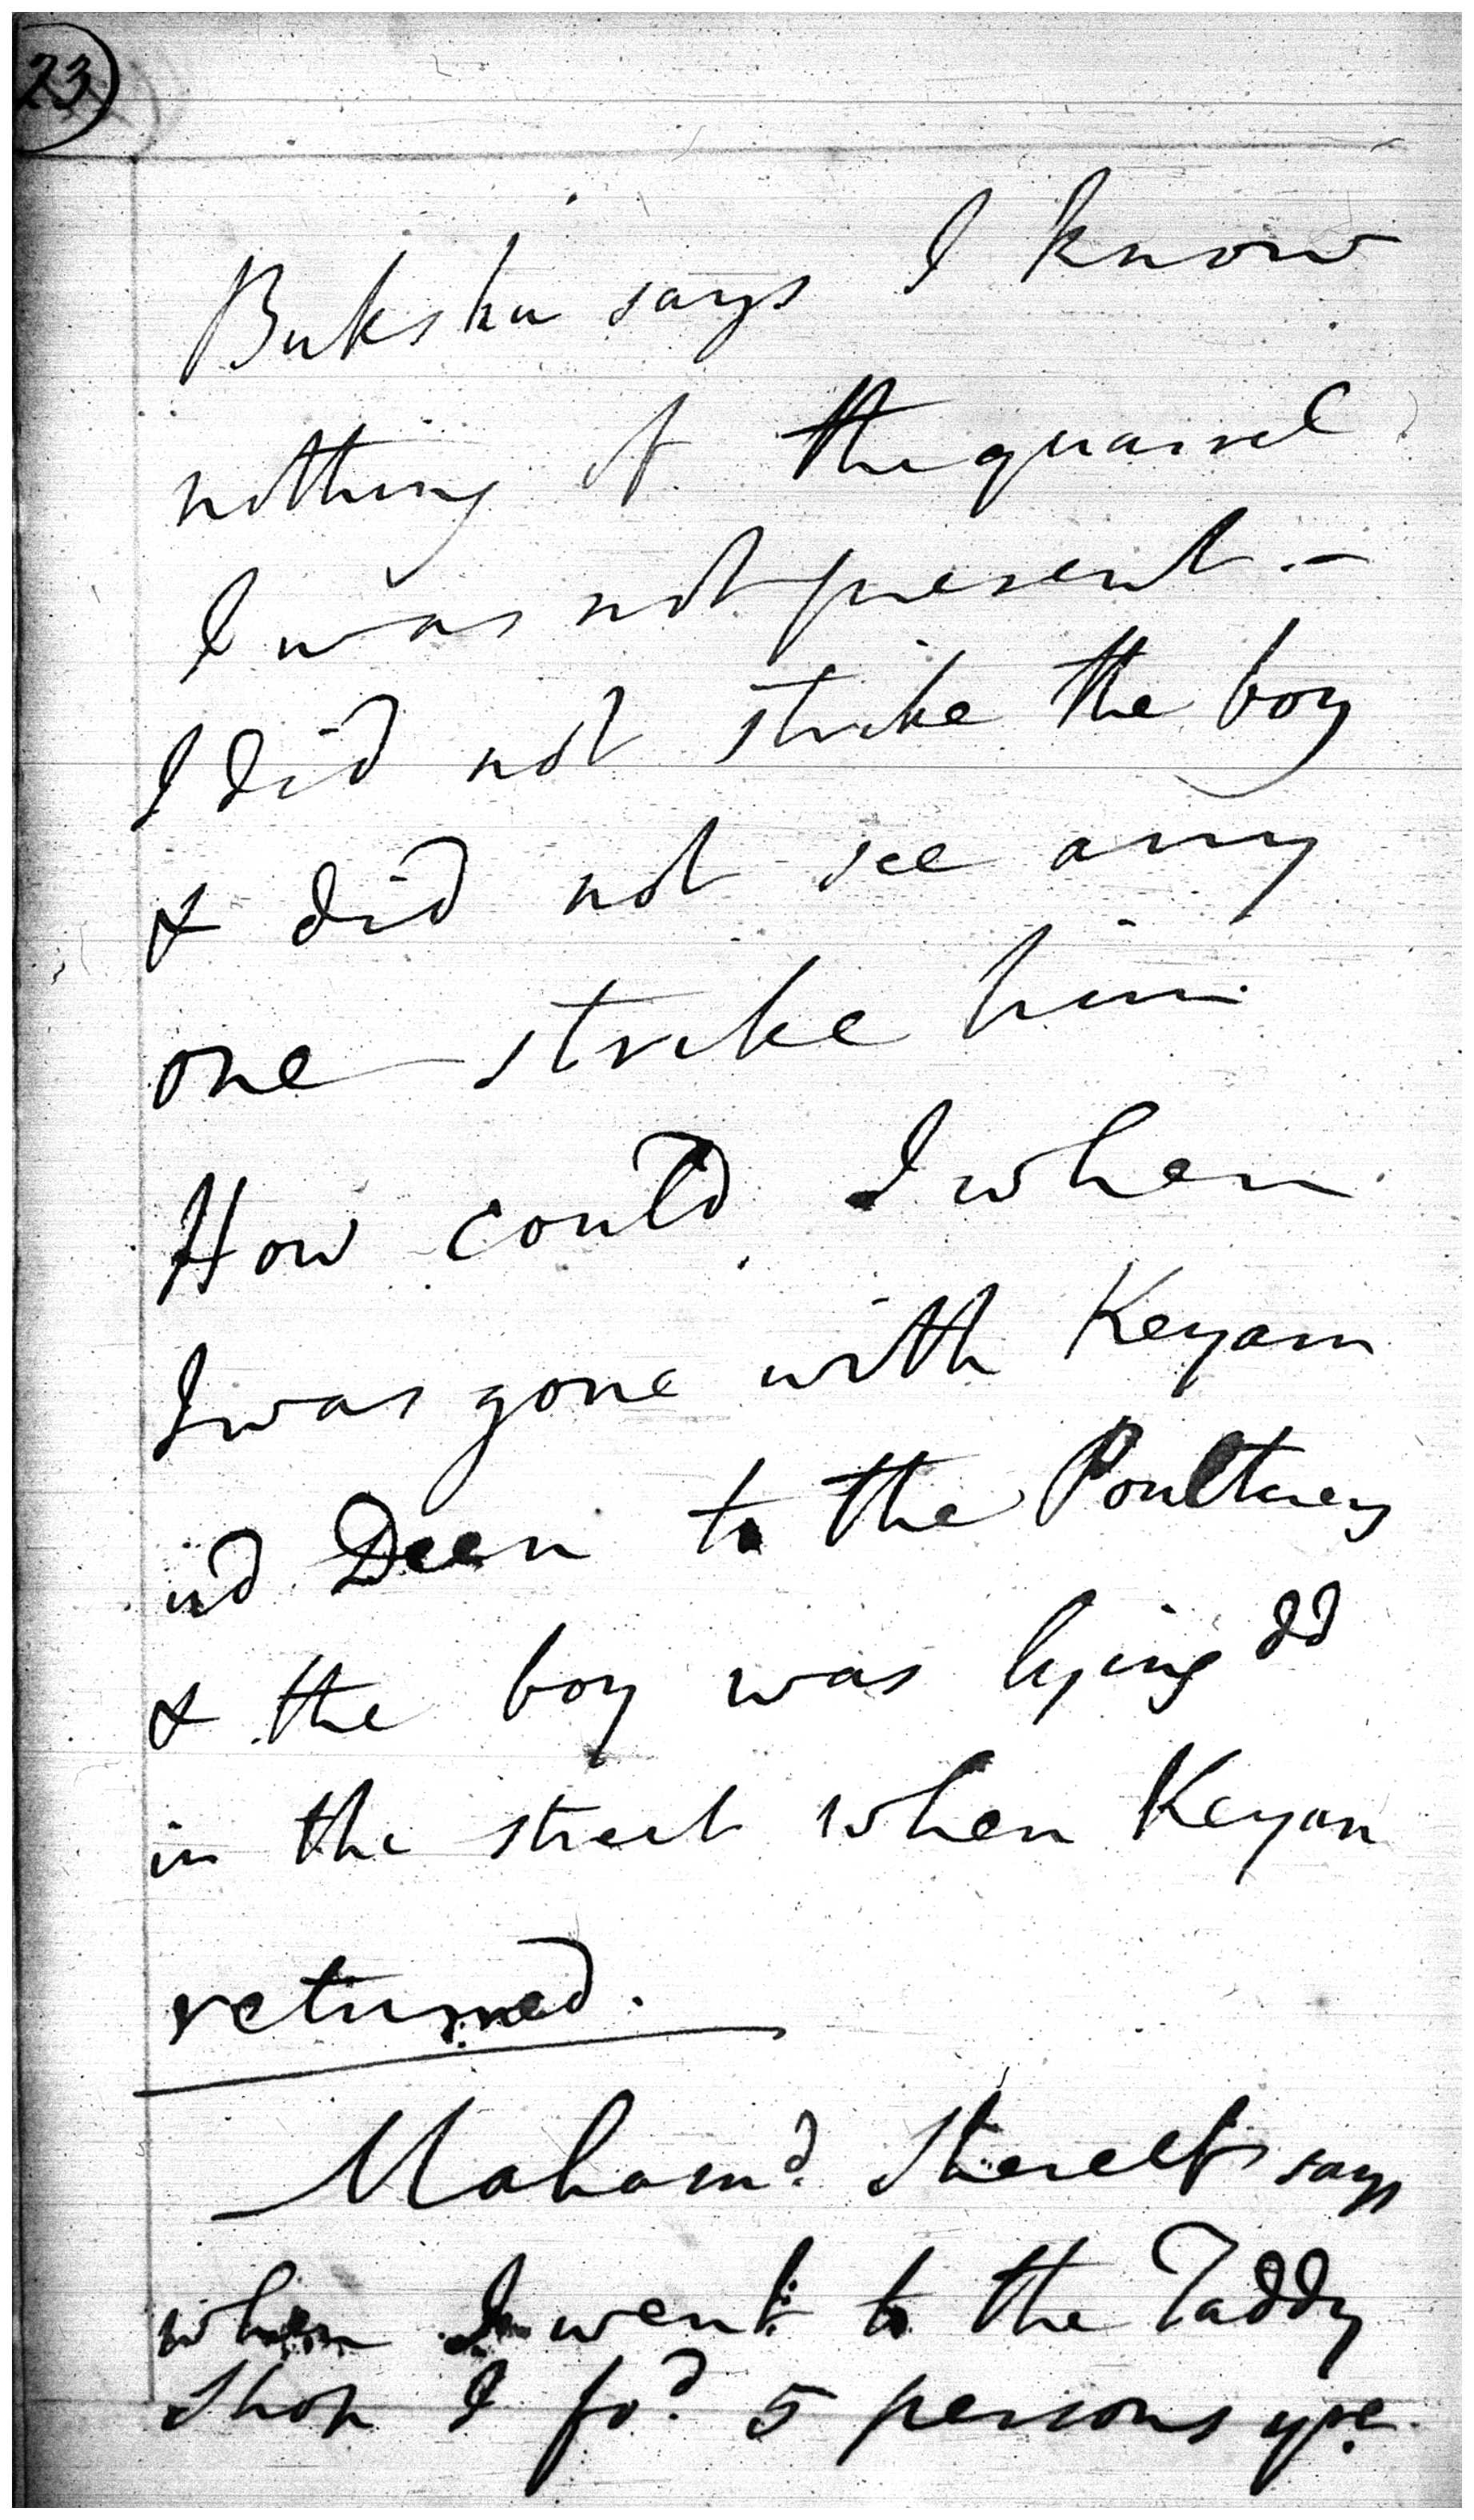 23
Bukshu says I know
nothing of the quarrel
I was not present. -
I did not strike the boy
& did not see any
one strike him
How could I when
I was gone with Keyam
ud Deen to the Poultney
& the boy was lying dd
in the street when Keyam
returned.
Mahamd. Shereef says
when I went to the Taddy
Shop I fod. 5 persons yre.